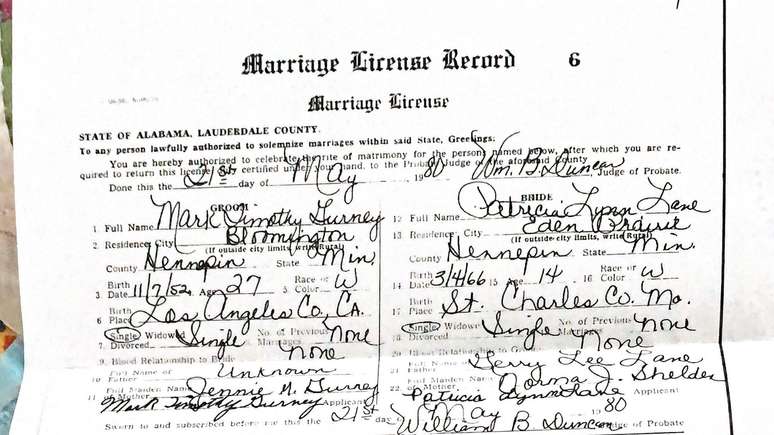 Marriage License Record 6
Marriage License
STATE OF ALABAMA, LAUDERDALE COUNTY.
To any person lawfully authorized to solemnize marriages within said State, Greetings:
You are hereby authorized to celebrate the rite of matrimony for the persons named below, after which you are re-
quired to return this license certified under hand, to the Probate Judge of the aforesaid County
Done this the 21st day of May 1980 Wm. B. Duncan Judge of Probate.
GROOM
1. Full Name Mark Timothy Gurney
2. Residence: City Bloomington
(If outside city limits, write Rural)
County Hennepin State Min.
3 Birth Date 11/7/52 4 Age 27 5 Race or Color W
6 Birth Place Los Angeles Co, CA.
7. Single Widowed Divorced Single No. of Previous Marriages None
9. Blood Relationship to Bride None
10 Full Name of Father Unknown
11 Full Maiden Name of Mother Jennie N. Gurney
Mark Timothy Gurney Applicant
BRIDE
12 Full Name Patricia Lynn Lane
13. Residence, City Eden Prairie
(If outside city limits, write Rural)
County Hennepin State Min.
14 Birth Date 3/4/66 15 Age 14 16 Race or Color W
17 Birth Place St. Charles Co. Mo.
18. Single Widow Divorced Single No. of Previous Marriages None
20 Blood Relationship to Groom None
Full Name of Father Jerry Lee Lane
22. Full Maiden Name of Mother Norma J. Shelden
Patricia Lynn Lane Applicant
Sworn to and subscribed before me this the 21st day May 1980
William B. Duncan Judge of Probate